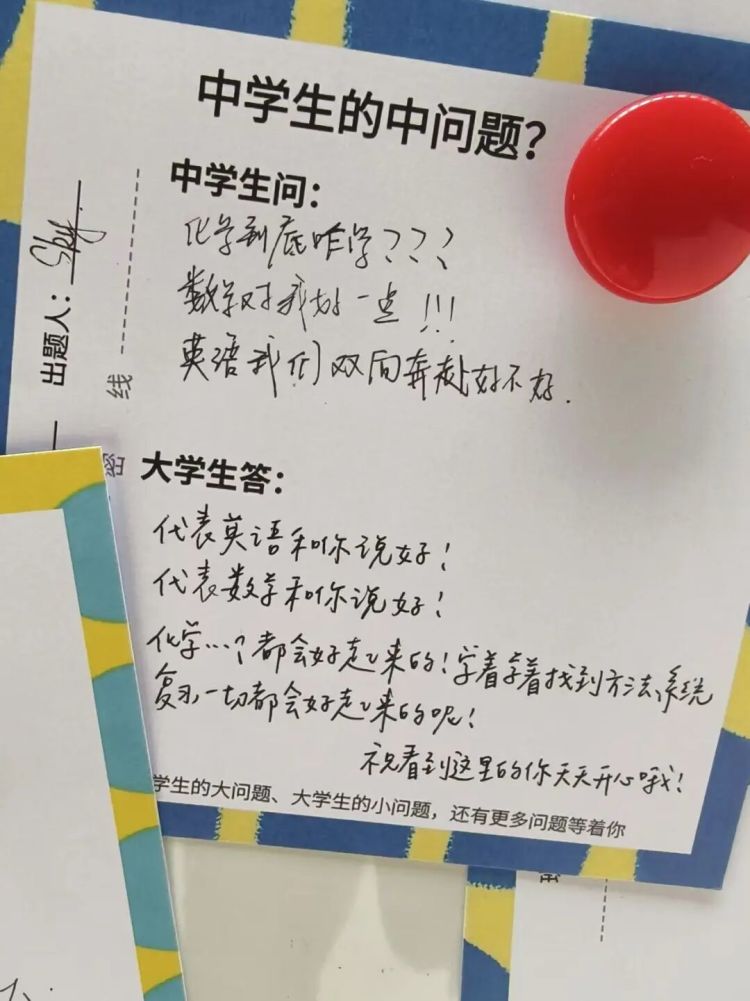 中学生的中问题?
中学生问：
化学到底咋学???
数学对我好一点!!!
英语我们双向奔赴好不好.
出题人：Sky
线
密
大学生答：
代表英语和你说好!
代表数学和你说好!
化学…?都会好起来的!学着学着找到方法、系统
复习一切都会好起来的呢!
祝看到这里的你天天开心哦!
学生的大问题、大学生的小问题，还有更多问题等着你